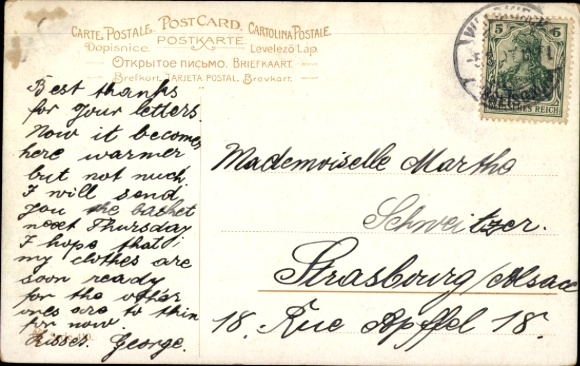 CARTE POSTALE. POSTCARD. CARTOLINA POSTALE.
Dopisnice. POSTKARTE Levelező Lap.
Открытое письмо. BRIEFKAART.
Brefkort. TARJETA POSTAL. Brevkort.
Best thanks
for your letters.
Now it becomes
here warmer
but not much
I will send
you the basket
next Thursday
I hope that
my clothes are
soon ready
for the other
ones are to thin
for now.
Kisses. George.
Mademoiselle Martha
Schweitzer.
Strasbourg/Alsace
18. Rue Apffel 18.
5 5
DEUTSCHES REICH